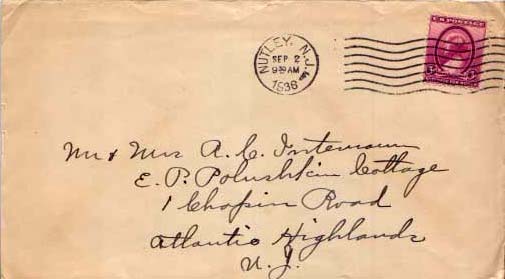 U.S. POSTAGE
NUTLEY, N.J.
SEP 2
9 AM
1936
3
Mr & Mrs A. C. Intemann
E. P. Polushkin Cottage
1 Chapin Road
Atlantic Highlands
N. J.